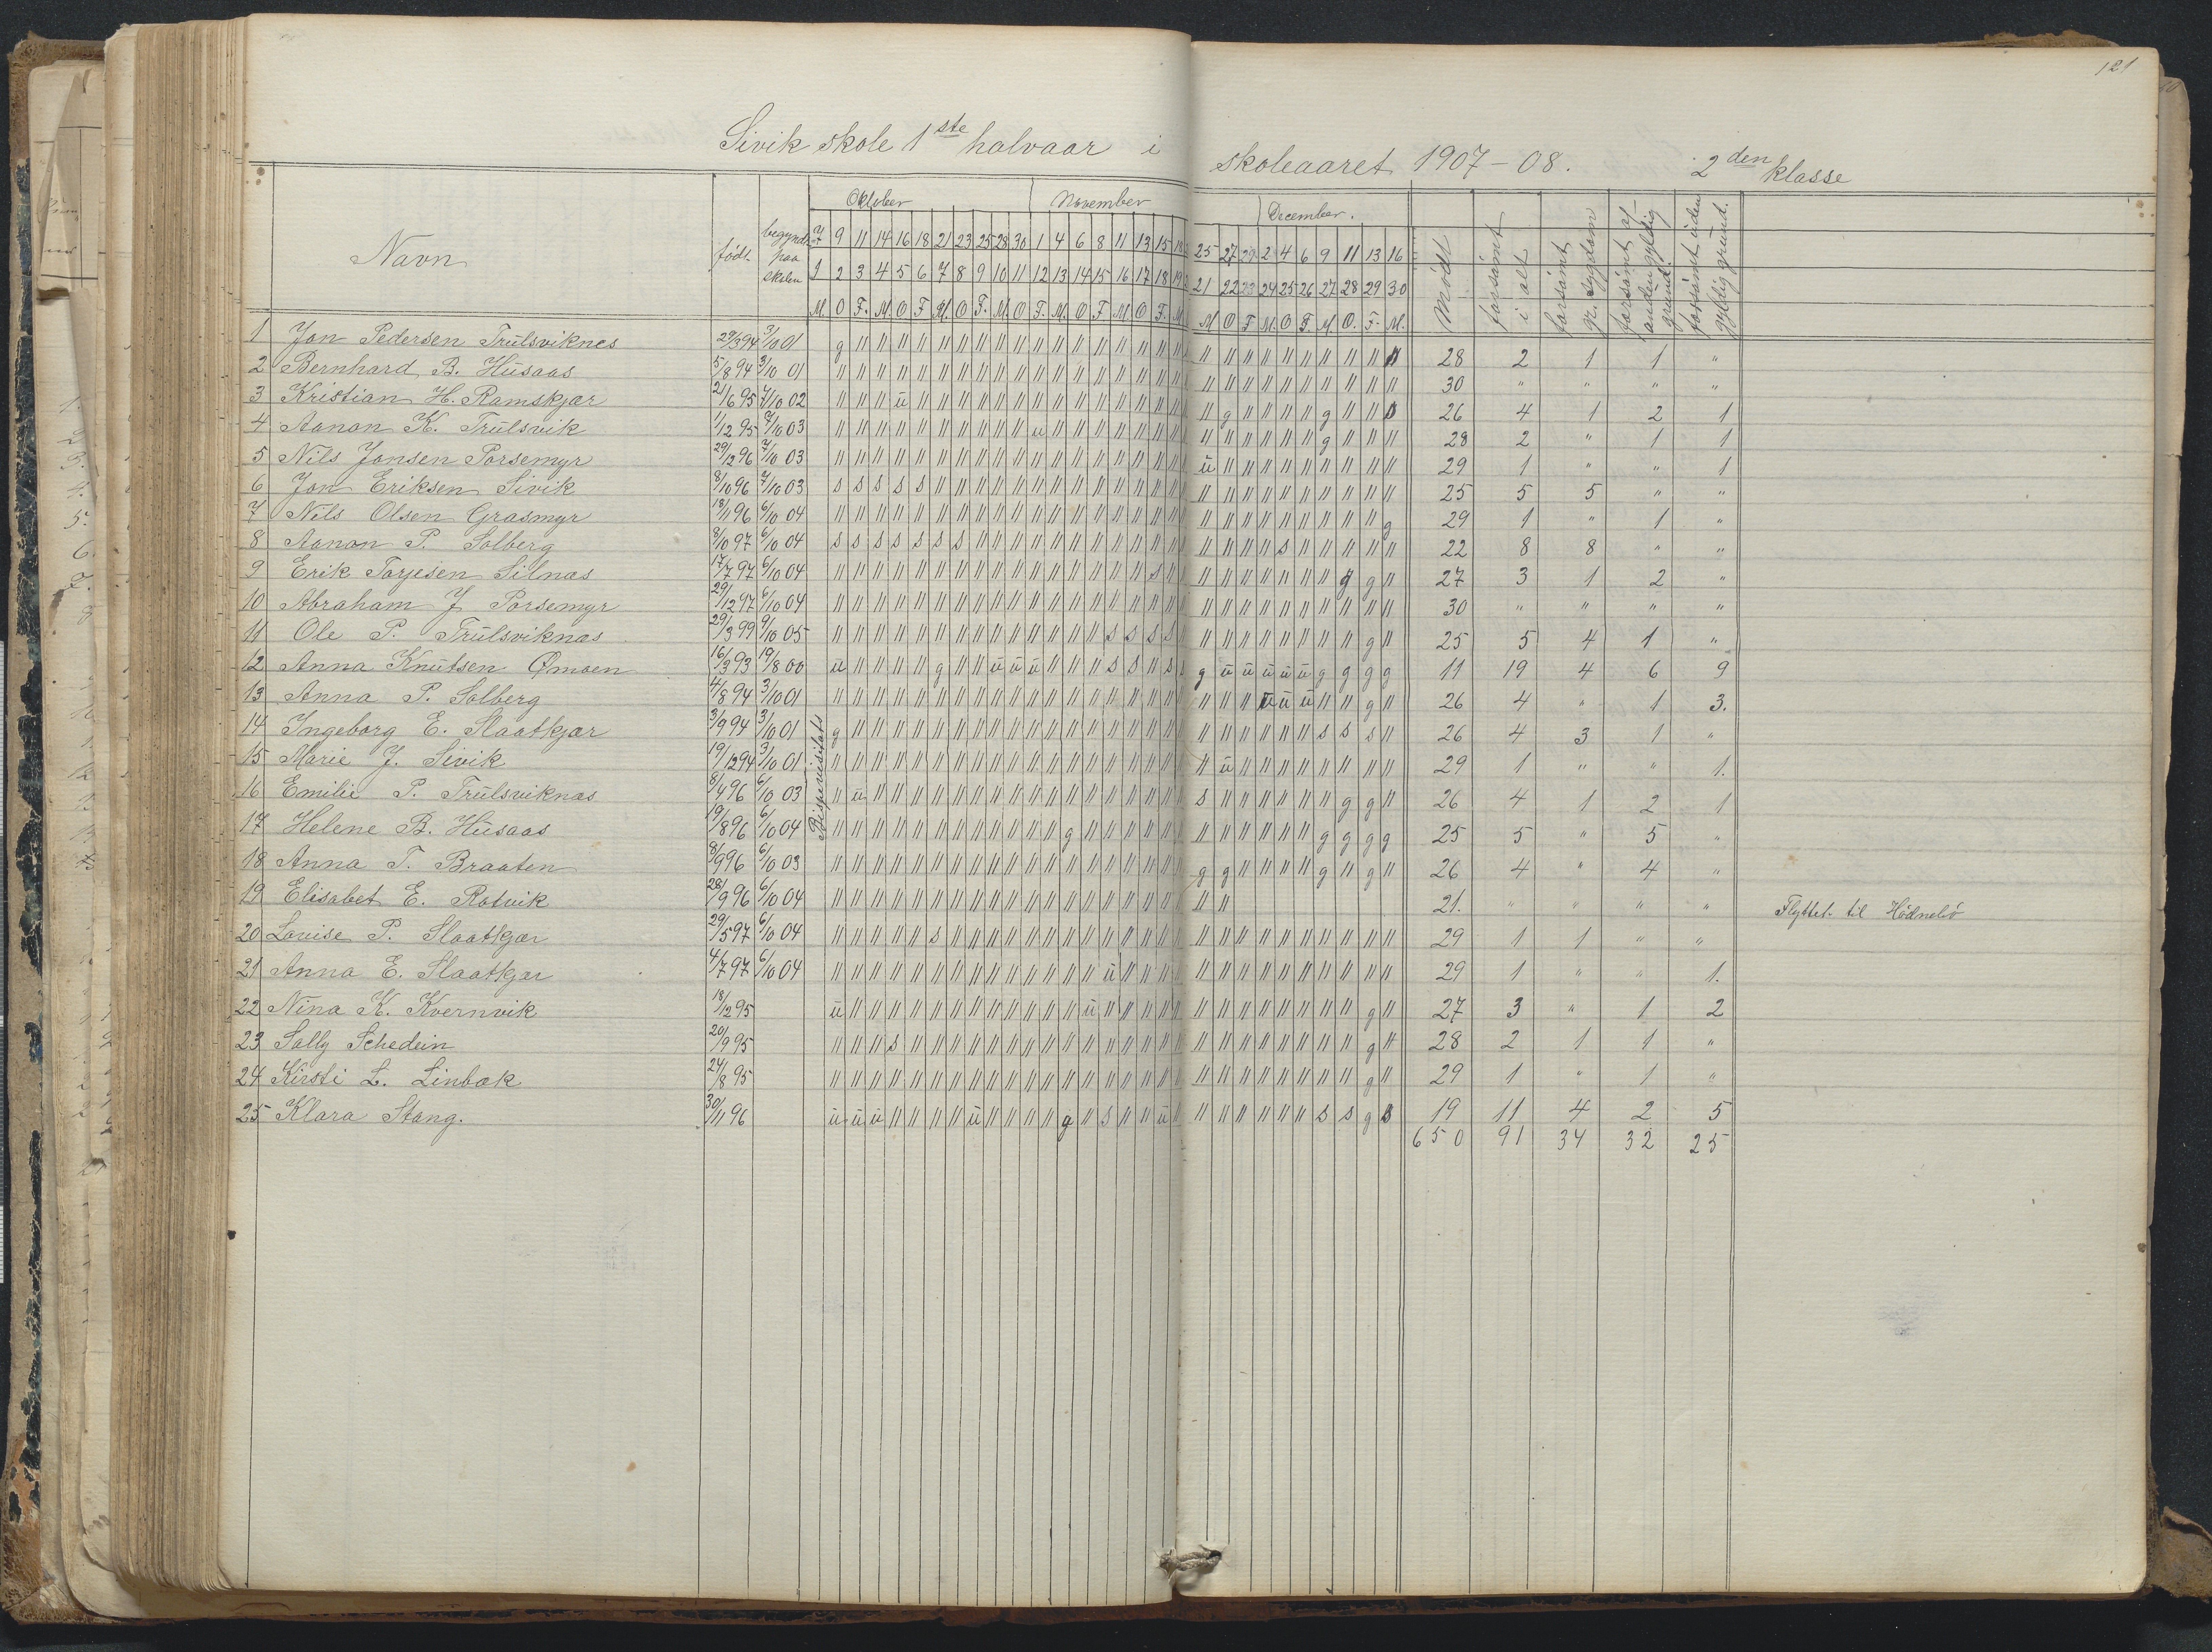 121
Sivik skole 1ste halvaar i skoleaaret 1907-08. 2den klasse
Navn født begyndt paa skolen Oktober November December. Mødt forsømt i alt forsømt gr. sygdom forsømt af anden gyldig grund. forsømt uden gyldig grund.
7 9 11 14 16 18 21 23 25 28 30 1 4 6 8 11 13 15 18 25 27 29 2 4 6 9 11 13 16
1 2 3 4 5 6 7 8 9 10 11 12 13 14 15 16 17 18 19 21 22 23 24 25 26 27 28 29 30
M. O F. M. O F M. O F. M. O F. M. O F M. O F. M. M O F M. O F. M O. F. M.
Bispevisitats
1 Jon Pedersen Trulsviknes 29/3 94 3/10 01 g 〃 〃 〃 〃 〃 〃 〃 〃 〃 〃 〃 〃 〃 〃 〃 〃 〃 〃 〃 〃 〃 〃 〃 〃 〃 〃 〃 28 2 1 1 "
2 Bernhard B. Husaas 5/8 94 3/10 01 30 " " " "
3 Kristian H. Ramskjær 21/6 95 7/10 02 ü g g s 26 4 1 2 1
4 Aanon K. Trulsvik 1/12 95 7/10 03 u g 28 2 " 1 1
5 Nils Jonsen Porsemyr 29/12 96 7/10 03 ü 29 1 " " 1
6 Jon Eriksen Sivik 8/10 96 7/10 03 s s s s s 25 5 5 " "
7 Nils Olsen Grasmyr 18/11 96 6/10 04 g 29 1 " 1 "
8 Aanon P. Solberg 8/10 97 6/10 04 s s s s s s s s 22 8 8 " "
9 Erik Torjesen Silnas 17/7 97 6/10 04 s g g 27 3 1 2 "
10 Abraham J Porsemyr 29/12 97 6/10 04 30 " " " "
11 Ole P. Trulsviknas 29/3 99 9/10 05 s s s s g 25 5 4 1 "
12 Anna Knutsen Ømoen 16/3 93 19/8 00 u g ü ü ü s s s s g ü ü ü ü ü g g g g 11 19 4 6 9
13 Anna P. Solberg 4/8 94 3/10 01 ü ü ü g 26 4 " 1 3.
14 Ingeborg E. Slaatkjær 3/9 94 3/10 01 g s s s 26 4 3 1 "
15 Marie J. Sivik 19/12 94 3/10 01 ü 29 1 " " 1.
16 Emilie P. Trulsviknas 8/4 96 6/10 03 ü s g g 26 4 1 2 1
17 Helene B. Husaas 19/8 96 6/10 04 g g g g g 25 5 " 5 "
18 Anna T. Braaten 8/9 96 6/10 03 g g g g 26 4 " 4 "
19 Elisabet E. Rotvik 28/9 96 6/10 04 21. " " " " Flyttet til Hödnebö
20 Lovise P. Slaatkjær 29/5 97 6/10 04 s 29 1 1 " "
21 Anna E. Slaatkjær 4/7 97 6/10 04 ü 29 1 " " 1.
22 Nina K. Kvernvik 18/12 95 ü ü g 27 3 " 1 2
23 Sally Schedein 20/9 95 s g 28 2 1 1 "
24 Kirsti L. Linbæk 24/8 95 g 29 1 " 1 "
25 Klara Stang. 30/11 96 ü ü ü ü g s ü s s g s 19 11 4 2 5
650 91 34 32 25